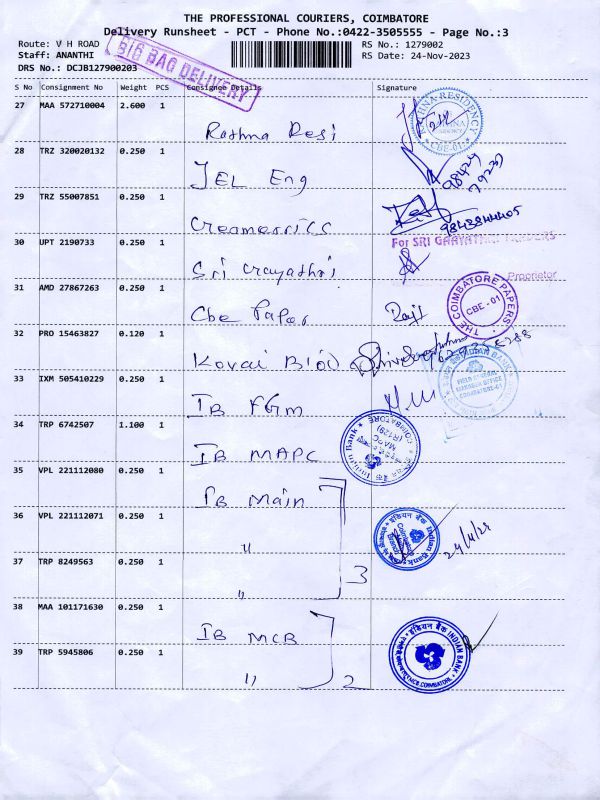 THE PROFESSIONAL COURIERS, COIMBATORE
Delivery Runsheet - PCT - Phone No.:0422-3505555 - Page No.:3
Route: V H ROAD
RS No.: 1279002
Staff: ANANTHI
RS Date: 24-Nov-2023
DRS No.: DCJB127900203
BIG BAG DELIVERY
S No Consignment No Weight PCS Consignee Details Signature
27 MAA 572710004 2.600 1
Rathna Resi
RATHNA RESIDENCY
CBE-01
28 TRZ 320020132 0.250 1
JEL Eng
98429
79237
29 TRZ 55007851 0.250 1
Creamerries
9843844405
30 UPT 2190733 0.250 1
For SRI GAAYATHRI PAPERS
Sri Gayathri
Proprietor
31 AMD 27867263 0.250 1
Cbe Paper
THE COIMBATORE PAPERS
CBE - 01
32 PRO 15463827 0.120 1
Kovai Bio
33 IXM 505410229 0.250 1
INDIAN BANK
FIELD GENERAL
MANAGER OFFICE
COIMBATORE-01
IB FGm
34 TRP 6742507 1.100 1
IB MAPC
Indian Bank
MAPC
(R129)
COIMBATORE
35 VPL 221112080 0.250 1
IB Main
36 VPL 221112071 0.250 1
"
इंडियन बैंक Indian Bank
24/11/23
37 TRP 8249563 0.250 1
"
3
38 MAA 101171630 0.250 1
IB MCB
इंडियन बैंक INDIAN BANK
39 TRP 5945806 0.250 1
"
2